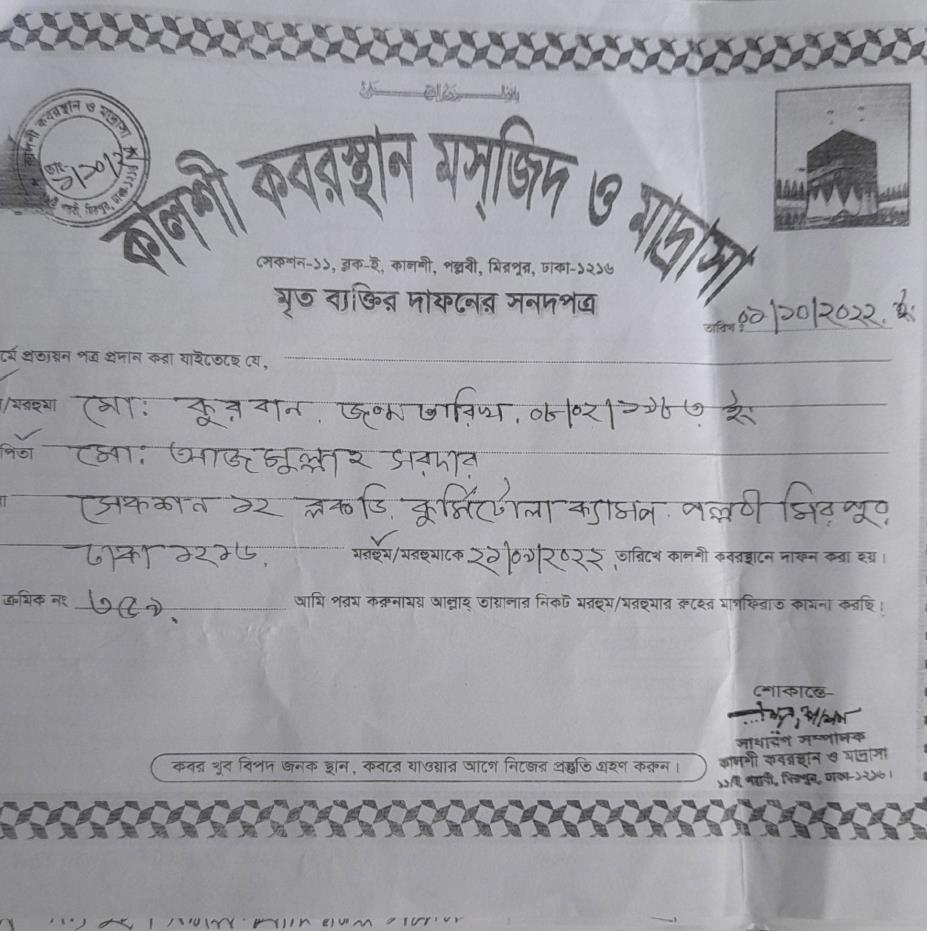 কালশী কবরস্থান মসজিদ ও মাদ্রাসা
সেকশন-১১, ব্লক-ই, কালশী, পল্লবী, মিরপুর, ঢাকা-১২১৬
মৃত ব্যক্তির দাফনের সনদপত্র
তারিখ : ০১/১০/২০২২ ইং
র্মে প্রত্যয়ন পত্র প্রদান করা যাইতেছে যে,
/মরহুমা মো: কুরবান, জন্ম তারিখ, ০৮/০২/১৯৮৩ ইং
পিতা মো: সরদার
সেকশন ১২ ব্লক ডি, কুর্মিটোলা ক্যাম্প পল্লবী মিরপুর
ঢাকা ১২১৬, মরহুম/মরহুমাকে তারিখে কালশী কবরস্থানে দাফন করা হয়।
ক্রমিক নং ৩৫৯ আমি পরম করুনাময় আল্লাহ্ তায়ালার নিকট মরহুম/মরহুমার রুহের মাগফিরাত কামনা করছি।
শোকাতে-
সাধারণ সম্পাদক
কালশী কবরস্থান ও মাদ্রাসা
১১/ই পল্লবী, মিরপুর, ঢাকা-১২১৬।
কবর খুব বিপদ জনক স্থান, কবরে যাওয়ার আগে নিজের প্রস্তুতি গ্রহণ করুন।